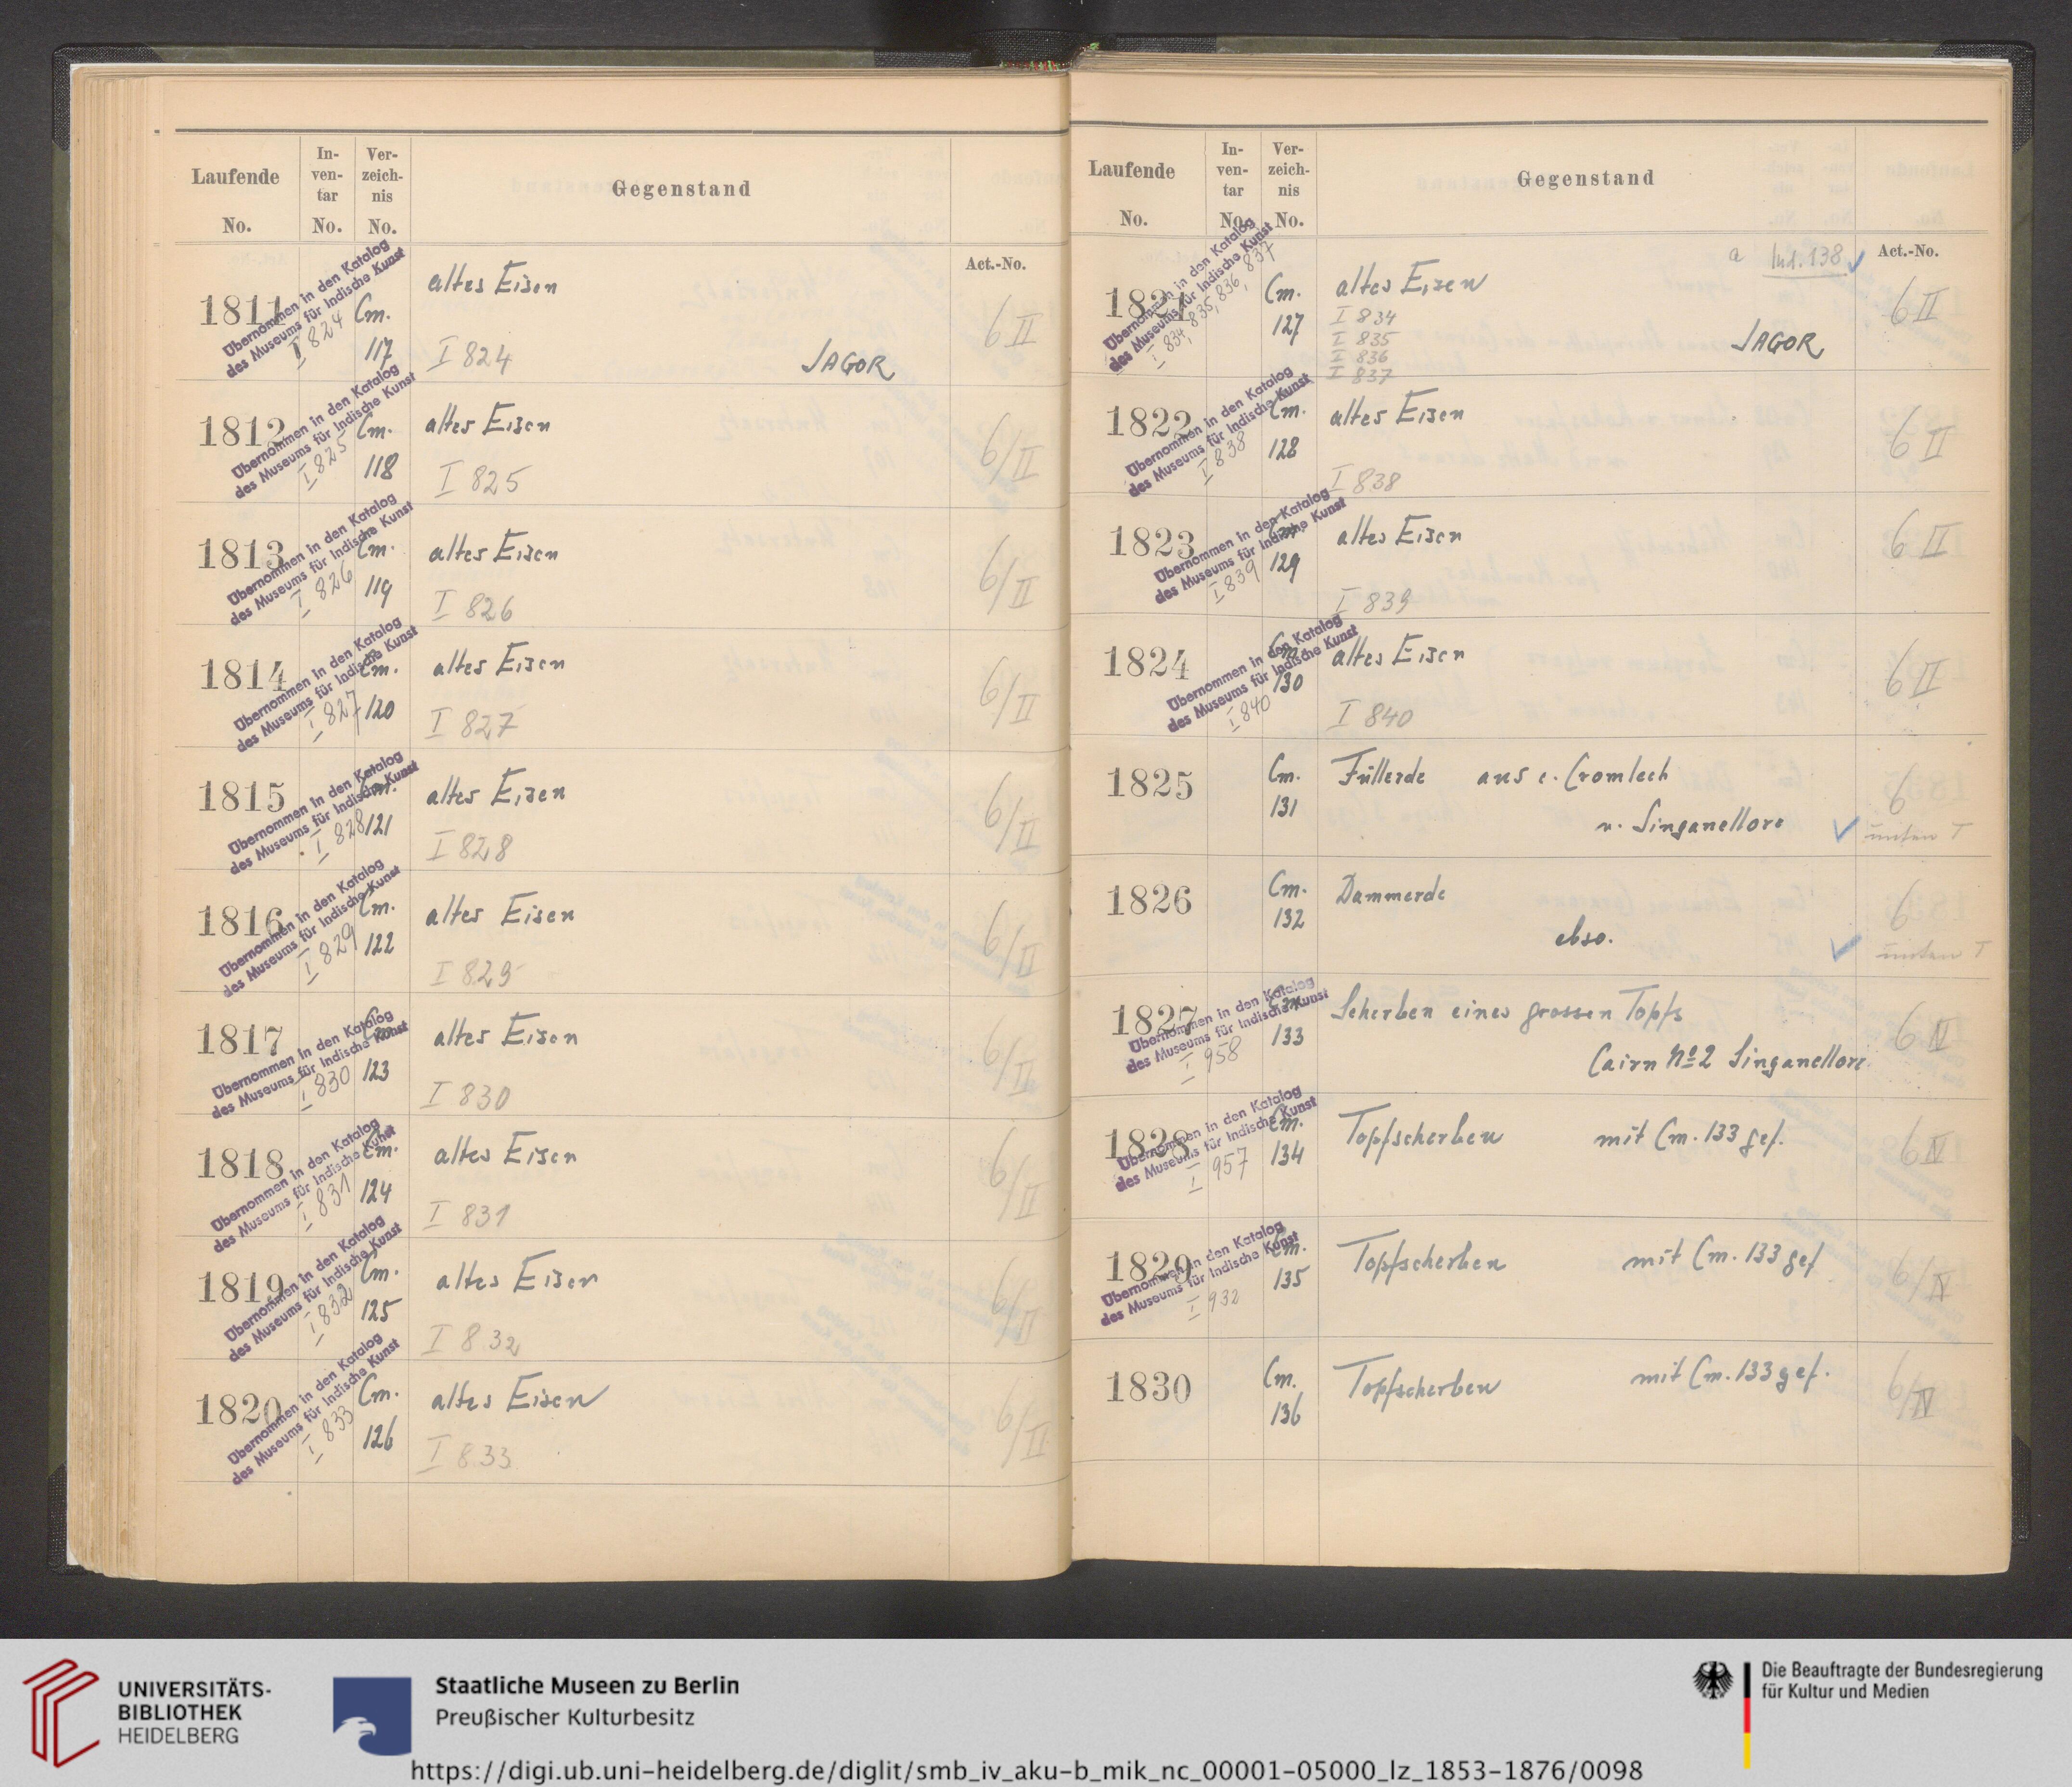 Laufende
No.
In-
ven-
tar
No.
Ver-
zeich-
nis
No.
Gegenstand
Act.-No.
1811
Übernommen in den Katalog
des Museums für Indische Kunst
I 824
Cm.
117
altes Eisen
I 824
JAGOR
6 II
1812
Übernommen in den Katalog
des Museums für Indische Kunst
I 825
Cm.
118
altes Eisen
I 825
6/II
1813
Übernommen in den Katalog
des Museums für Indische Kunst
I 826
Cm.
119
altes Eisen
I 826
6/II
1814
Übernommen in den Katalog
des Museums für Indische Kunst
I 827
Cm.
120
altes Eisen
I 827
6/II
1815
Übernommen in den Katalog
des Museums für Indische Kunst
I 828
Cm.
121
altes Eisen
I 828
6/II
1816
Übernommen in den Katalog
des Museums für Indische Kunst
I 829
Cm.
122
altes Eisen
I 829
6/II
1817
Übernommen in den Katalog
des Museums für Indische Kunst
I 830
Cm.
123
altes Eisen
I 830
6/II
1818
Übernommen in den Katalog
des Museums für Indische Kunst
I 831
Cm.
124
altes Eisen
I 831
6/II
1819
Übernommen in den Katalog
des Museums für Indische Kunst
I 832
Cm.
125
altes Eisen
I 832
6/II
1820
Übernommen in den Katalog
des Museums für Indische Kunst
I 833
Cm.
126
altes Eisen
I 833
6/II
Laufende
No.
In-
ven-
tar
No.
Ver-
zeich-
nis
No.
Gegenstand
Act.-No.
1821
Übernommen in den Katalog
des Museums für Indische Kunst
I 834, 835, 836, 837
Cm.
127
a Ind. 138 ✓
altes Eisen
I 834
I 835
I 836
I 837
JAGOR
6 II
1822
Übernommen in den Katalog
des Museums für Indische Kunst
I 838
Cm.
128
altes Eisen
I 838
6 II
1823
Übernommen in den Katalog
des Museums für Indische Kunst
I 839
Cm.
129
altes Eisen
I 839
6 II
1824
Übernommen in den Katalog
des Museums für Indische Kunst
I 840
Cm.
130
altes Eisen
I 840
6 II
1825
Cm.
131
Füllerde aus e. Cromlech
v. Singanellore ✓
6
unten T
1826
Cm.
132
Dammerde
ebso. ✓
6
unten T
1827
Übernommen in den Katalog
des Museums für Indische Kunst
I 958
Cm.
133
Scherben eines grossen Topfs
Cairn No 2 Singanellore
6 IV
1828
Übernommen in den Katalog
des Museums für Indische Kunst
I 957
Cm.
134
Topfscherben mit Cm. 133 gef.
6 IV
1829
Übernommen in den Katalog
des Museums für Indische Kunst
I 932
Cm.
135
Topfscherben mit Cm. 133 gef
6/IV
1830
Cm.
136
Topfscherben mit Cm. 133 gef.
6/IV
UNIVERSITÄTS-
BIBLIOTHEK
HEIDELBERG
Staatliche Museen zu Berlin
Preußischer Kulturbesitz
Die Beauftragte der Bundesregierung
für Kultur und Medien
https://digi.ub.uni-heidelberg.de/diglit/smb_iv_aku-b_mik_nc_00001-05000_lz_1853-1876/0098